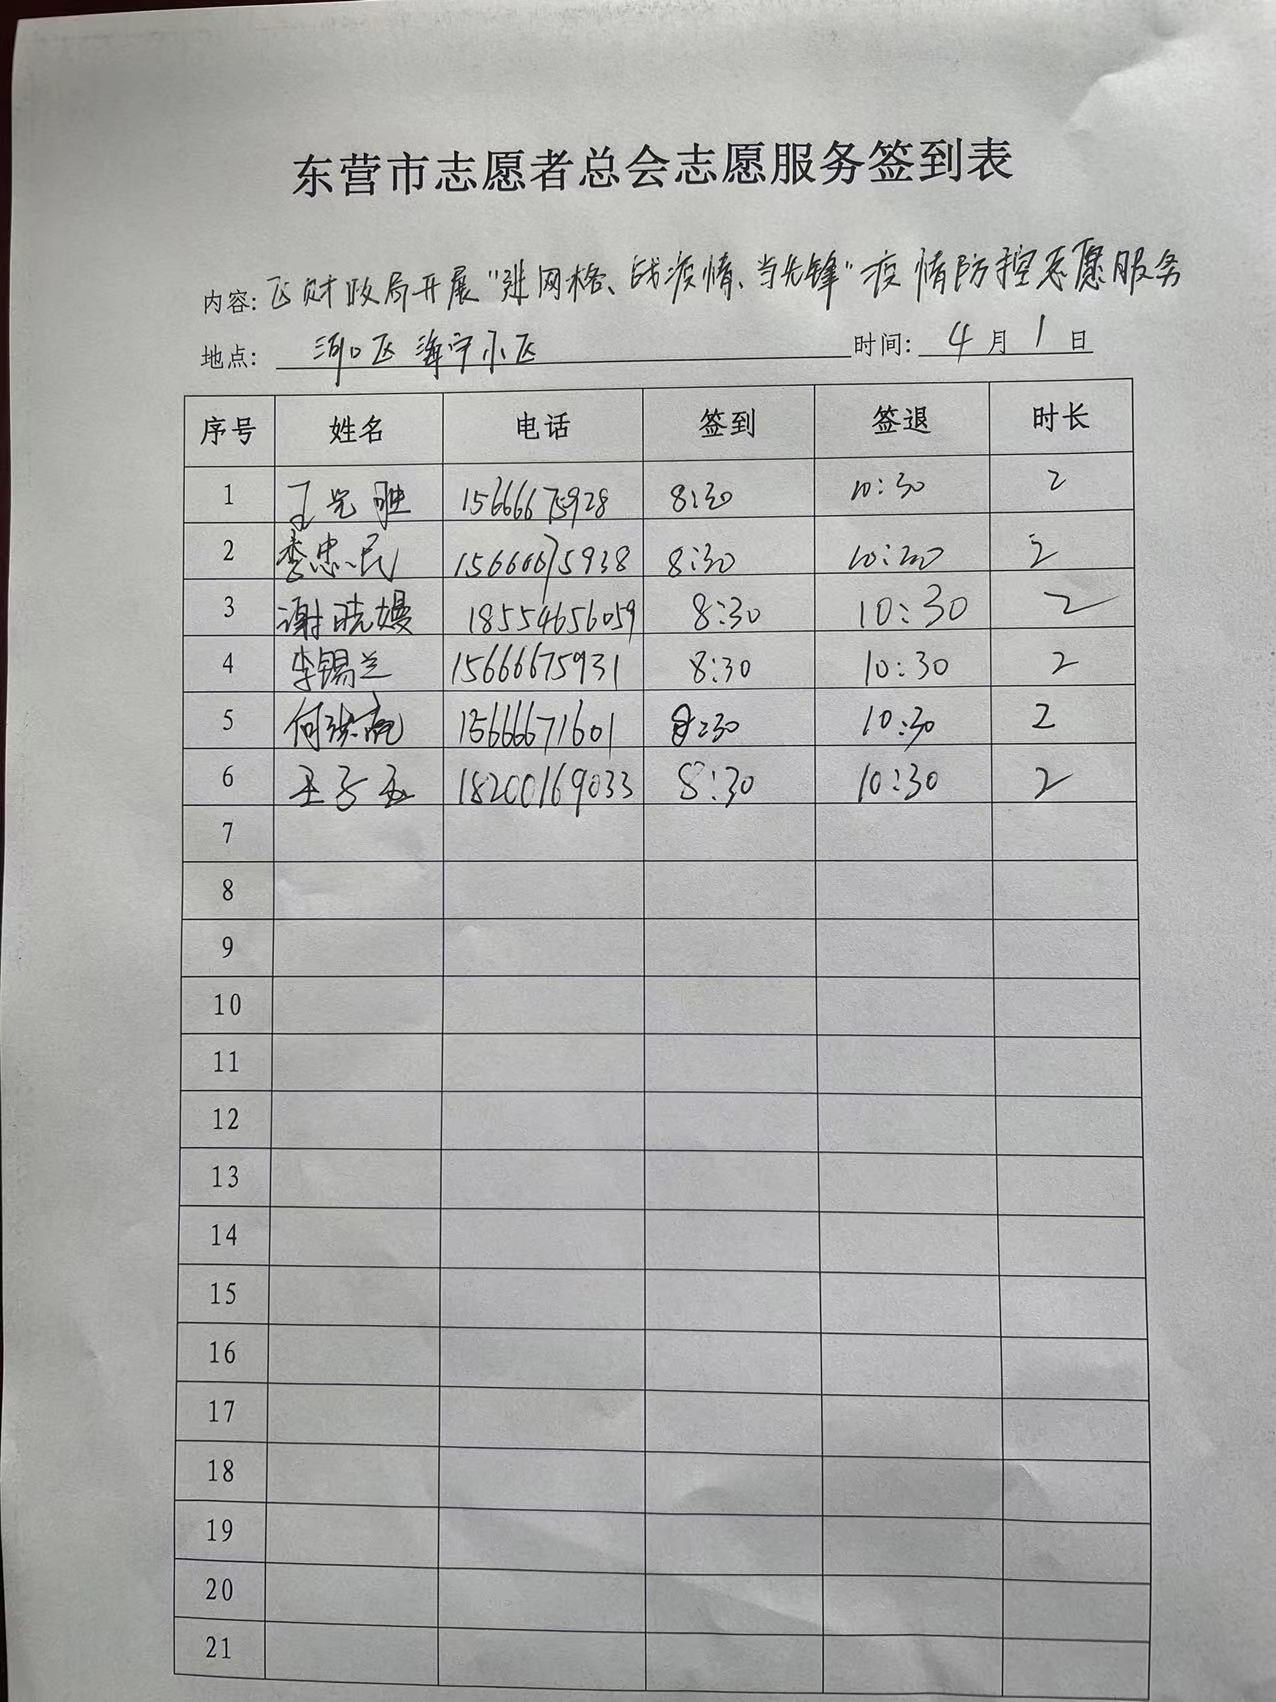 东营市志愿者总会志愿服务签到表
内容: 区财政局开展"进网格、战疫情、当先锋"疫情防控志愿服务
地点: 河口区海宁小区 时间: 4月1日
序号 姓名 电话 签到 签退 时长
1 王光胜 15666675928 8:30 10:30 2
2 李忠民 15666675938 8:30 10:30 2
3 谢晓嫚 18554656059 8:30 10:30 2
4 李锡兰 15666675931 8:30 10:30 2
5 何 15666671601 8:30 10:30 2
6 王子玉 18200169033 8:30 10:30 2
7
8
9
10
11
12
13
14
15
16
17
18
19
20
21